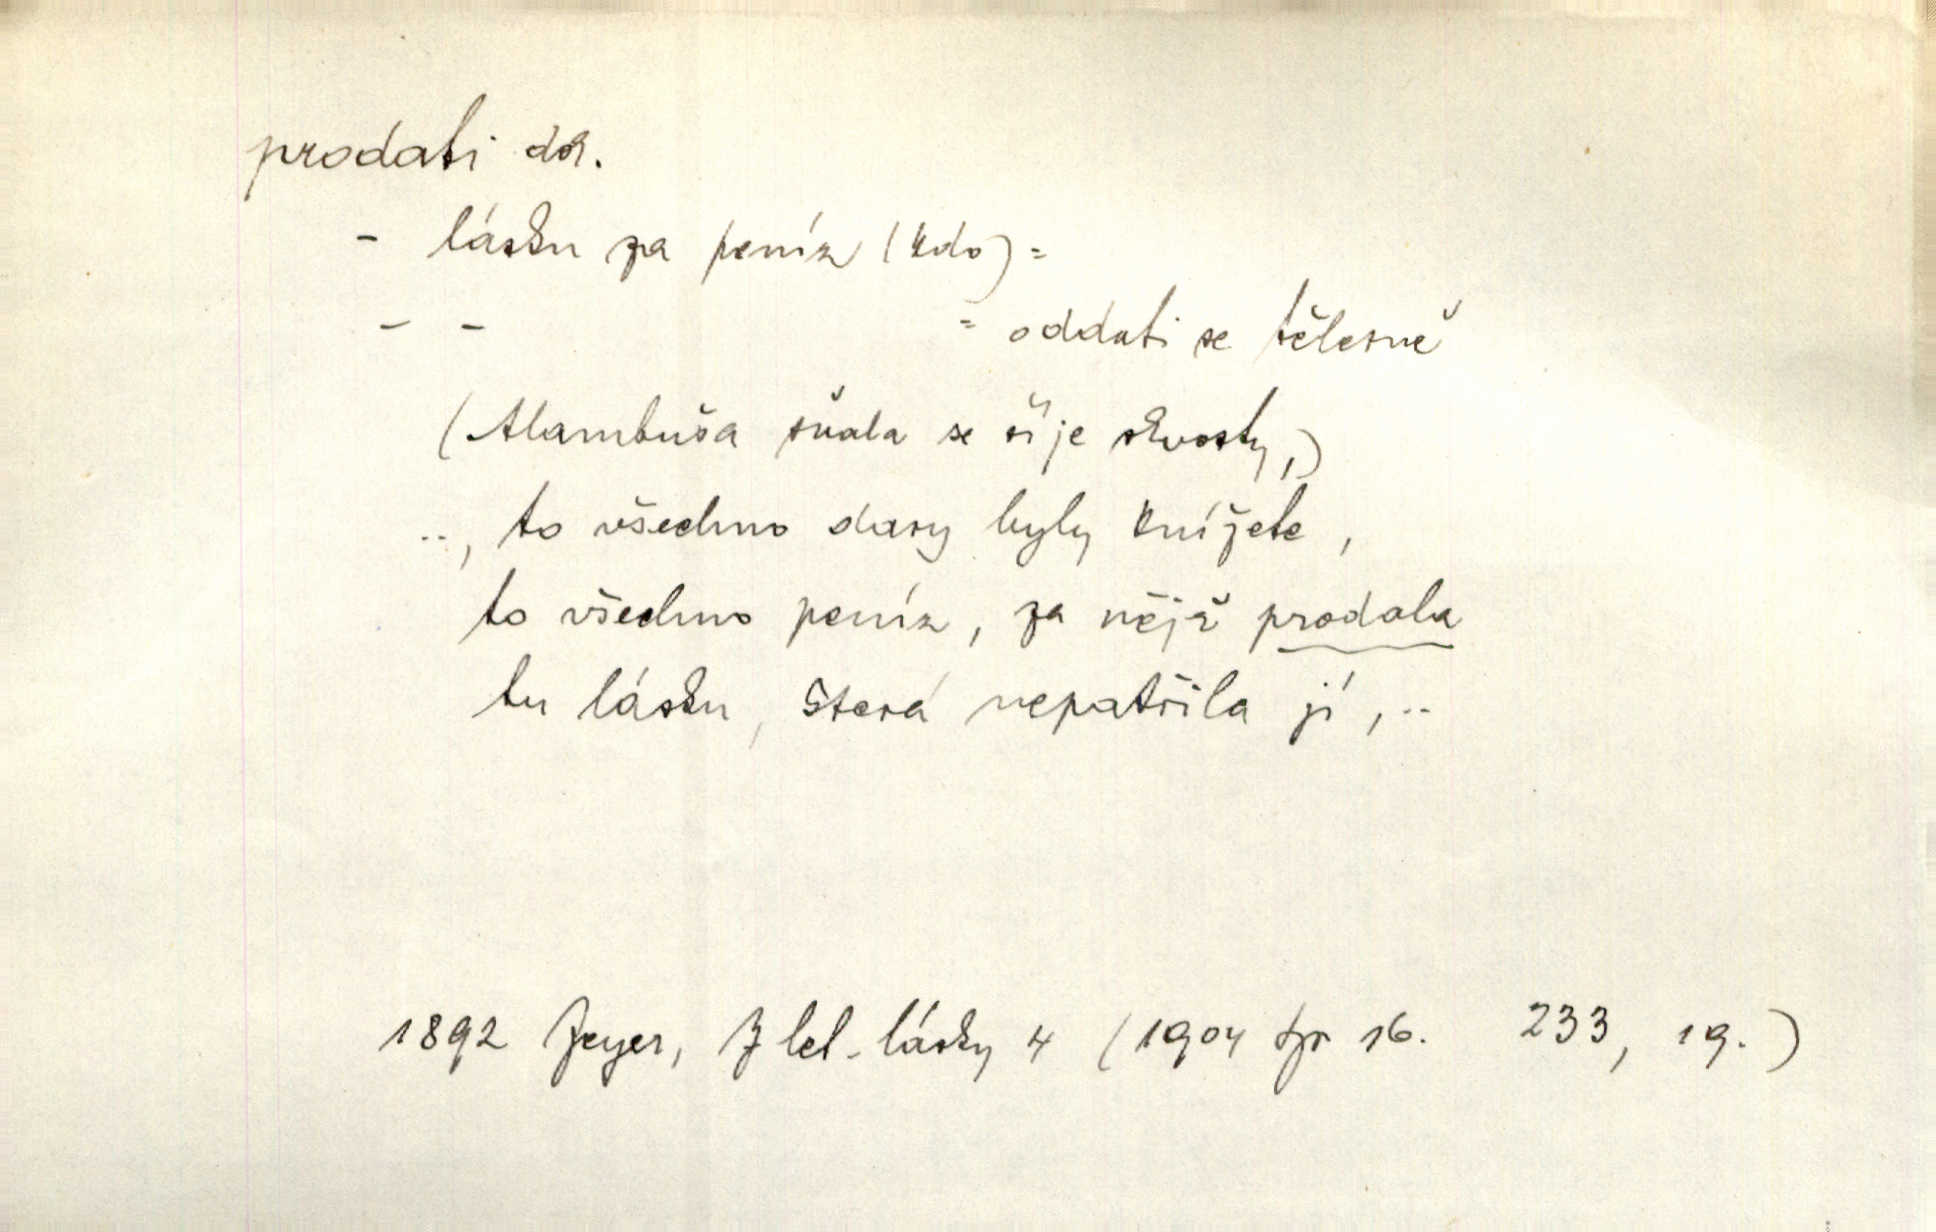 prodati dok.
- lásku za peníz (kdo) =
- - = oddati se tělesně
(Alambuša sňala se šíje skvosty,)
.., to všechno dary byly knížete,
to všechno peníz, za nějž prodala
tu lásku, která nepatřila jí, ..
1892 Zeyer, Z let. lásky 4 (1904 sp 16. 233, 19.)